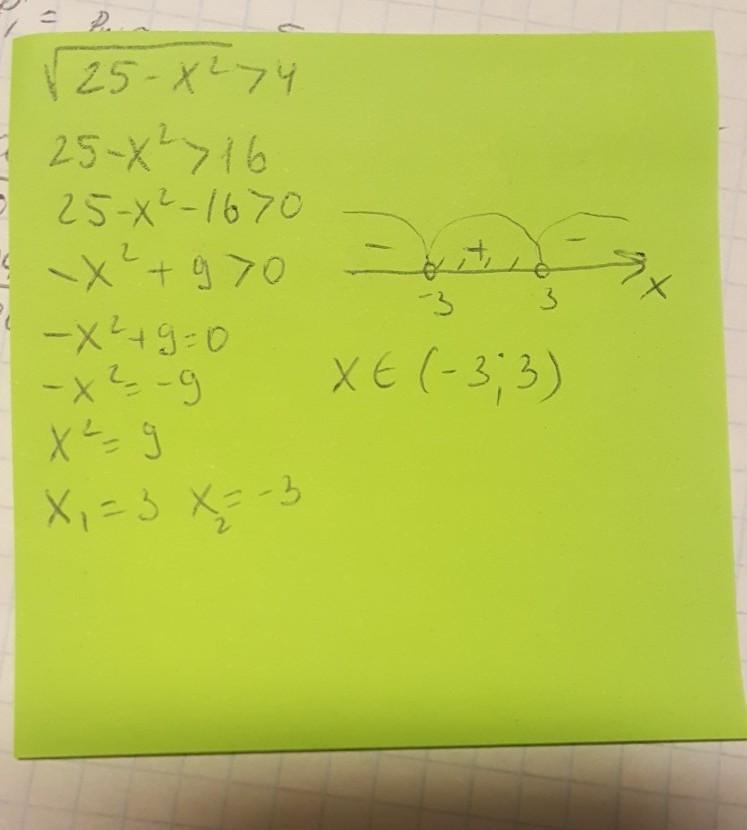 √25-x²>4
25-x²>16
25-x²-16>0
-x²+9>0
-x²+9=0
-x²=-9
x²=9
x₁=3 x₂=-3
- + -
-3 3 x
x∈(-3;3)